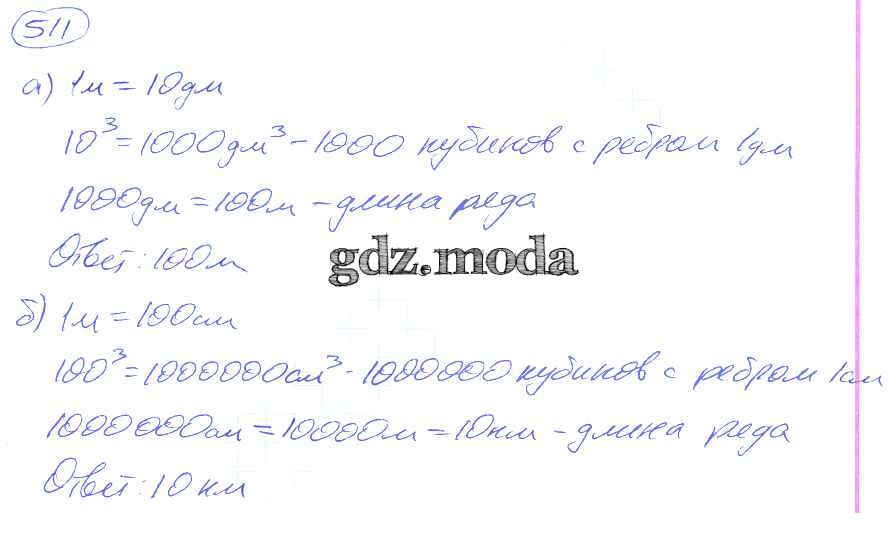 511
а) 1м = 10дм
10³ = 1000дм³ - 1000 кубиков с ребром 1дм
1000дм = 100м - длина ряда
Ответ: 100м
gdz.moda
б) 1м = 100см
100³ = 1000000см³ - 1000000 кубиков с ребром 1см
1000000см = 10000м = 10км - длина ряда
Ответ: 10 км